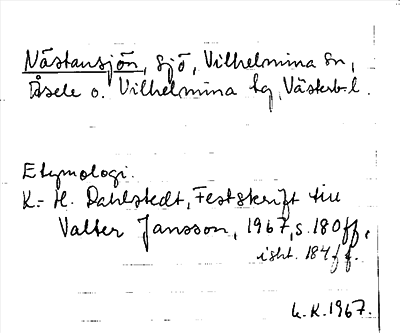 Nästansjön, sjö, Vilhelmina sn,
Åsele o. Vilhelmina tg, Västerb. l.
Etymologi.
K.-H. Dahlstedt, Festskrift till
Valter Jansson, 1967, s. 180 ff,
isht. 184 ff.
L. K. 1967.